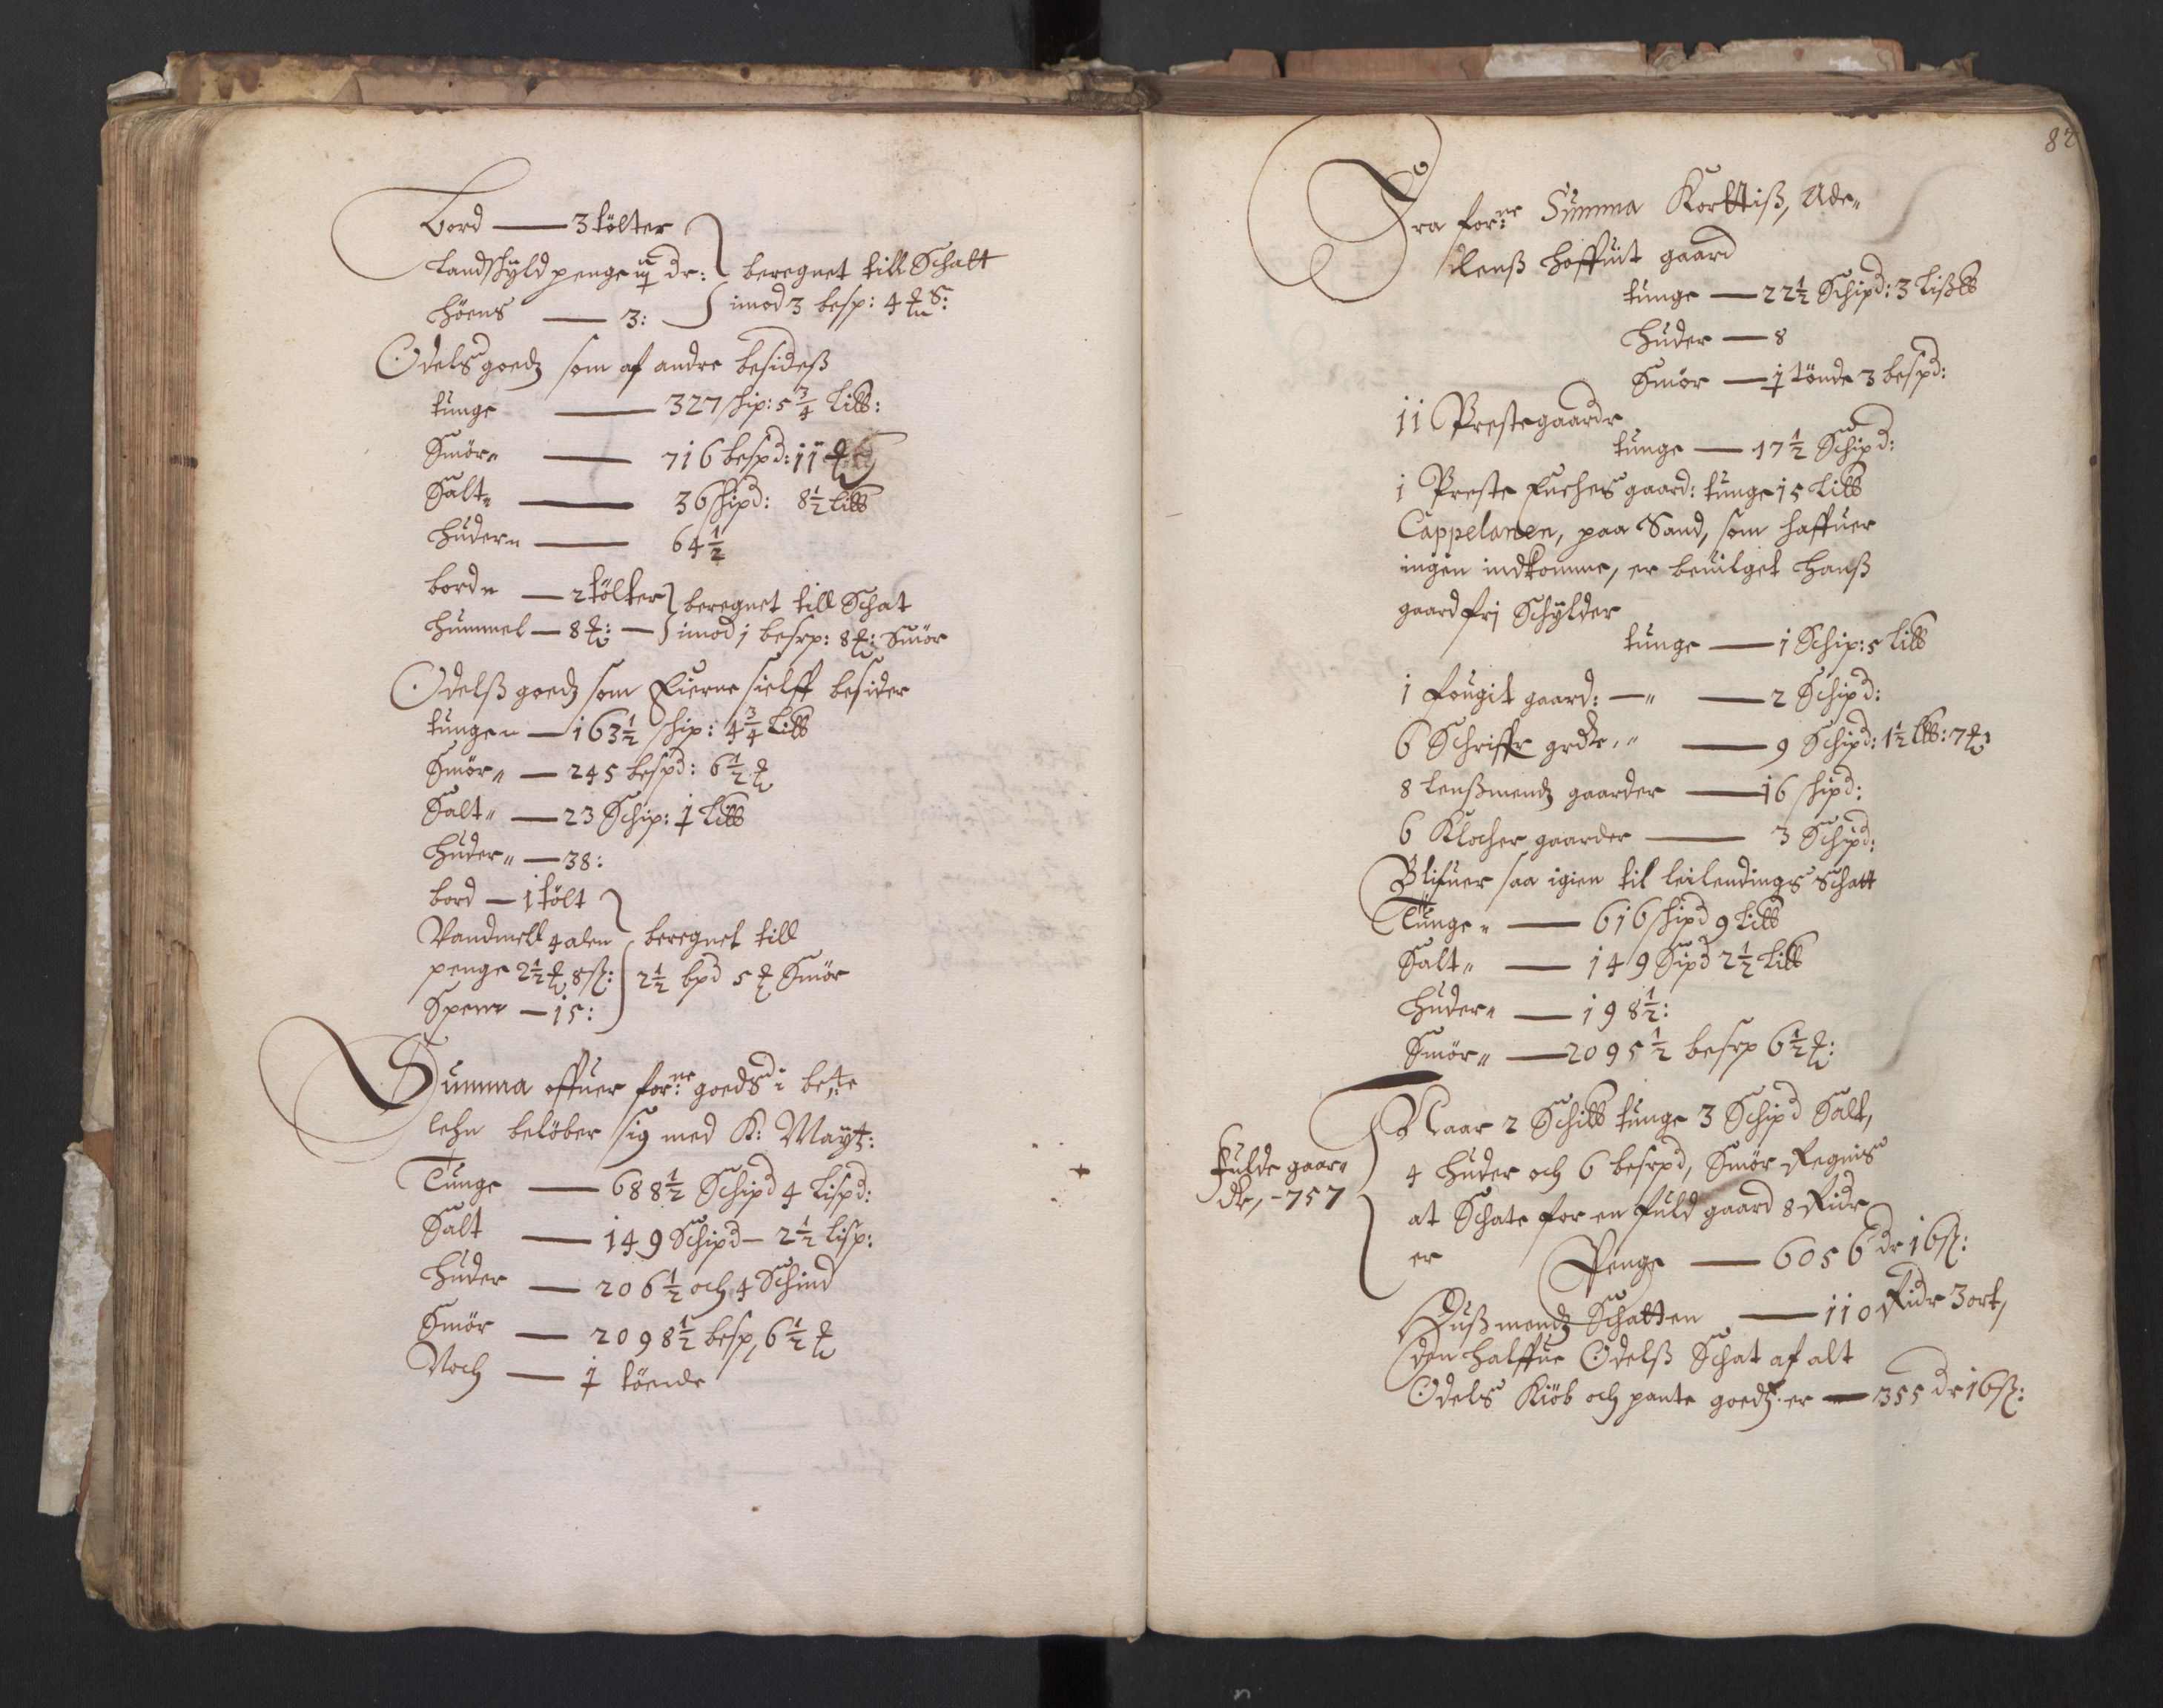 Bord — 3 tölter
Landschÿld penge dr: beregnet till Schatt
höens — 3: imod 3 besp: 4 S:
Odels goedz som af andre besidess
tunge — 327 ship: 5 3/4 Lib:
Smör„ — 716 bespd: 11
Salt„ — 36 shipd: 8 1/2 Lib
Huder„ — 64 1/2
bord„ — 2 tölter beregnet till Schat
Hummel — 8 — imod 1 besxp: 8 Smör
Odelss goedz som Eierne sielff besider
tunge„ — 163 1/2 ship: 4 3/4 Lib
Smör„ — 245 bespd: 6 1/2
Salt„ — 23 Schip: 1/2 Lib
Huder„ — 38:
bord — 1 tölt
Vandmell 4 alen beregnet till
penge 2 1/2 8 ß: 2 1/2 bpd 5 Smör
Spenn — 15:
Summa offuer for:ne goeds i be:te
lehn belöber sig med K: Maÿt:
Tunge — 688 1/2 Schipd 4 Lispd:
Salt — 149 Schipd — 2 1/2 Lisp:
Huder — 206 1/2 och 4 Schind
Smör — 2098 1/2 besp, 6 1/2
Noch — 1/2 töende
82
Fra for:ne Summa Korttiss, Ade„
Lenss hoffuit gaard
tunge — 22 1/2 Schipd: 3 Lissb
Huder — 8
Smör — 1/2 tönde 3 bespd:
11 Prestegaarde
tunge — 17 1/2 Schipd:
1 Preste Enches gaard: tunge 15 Lib
Cappelanen, paa Sand, som haffuer
ingen indkomme, er beuilget hanss
gaard fri Schÿlder
tunge — 1 Schip: 5 Lib
1 fougit gaard: —„ — 2 Schipd:
6 Schriffr grdr.„ — 9 Schipd: 1 1/2 Lb: 7
8 Lenssmendz gaarder — 16 shipd:
6 Klocher gaarder — 3 Schipd:
Blifuer saa igien til leilendings Schatt
Tunge„ — 616 shipd 9 Lib
Salt„ — 149 Sipd 2 1/2 Lib
Huder„ — 198 1/2:
Smör„ — 2095 1/2 besxp 6 1/2
Naar 2 Schib tunge 3 Schipd Salt,
4 Huder och 6 besxpd, Smör Regnis
fulde gaar„
de, - 757
at Schate for en fuld gaard 8 Ridr
er Penge — 6056 dr 16 ß:
Hussmendz Schatten — 110 Ridr 3 ort,
den halffue Odelss Schat af alt
Odels Kiöb och pante goedz er — 355 dr 16 ß: